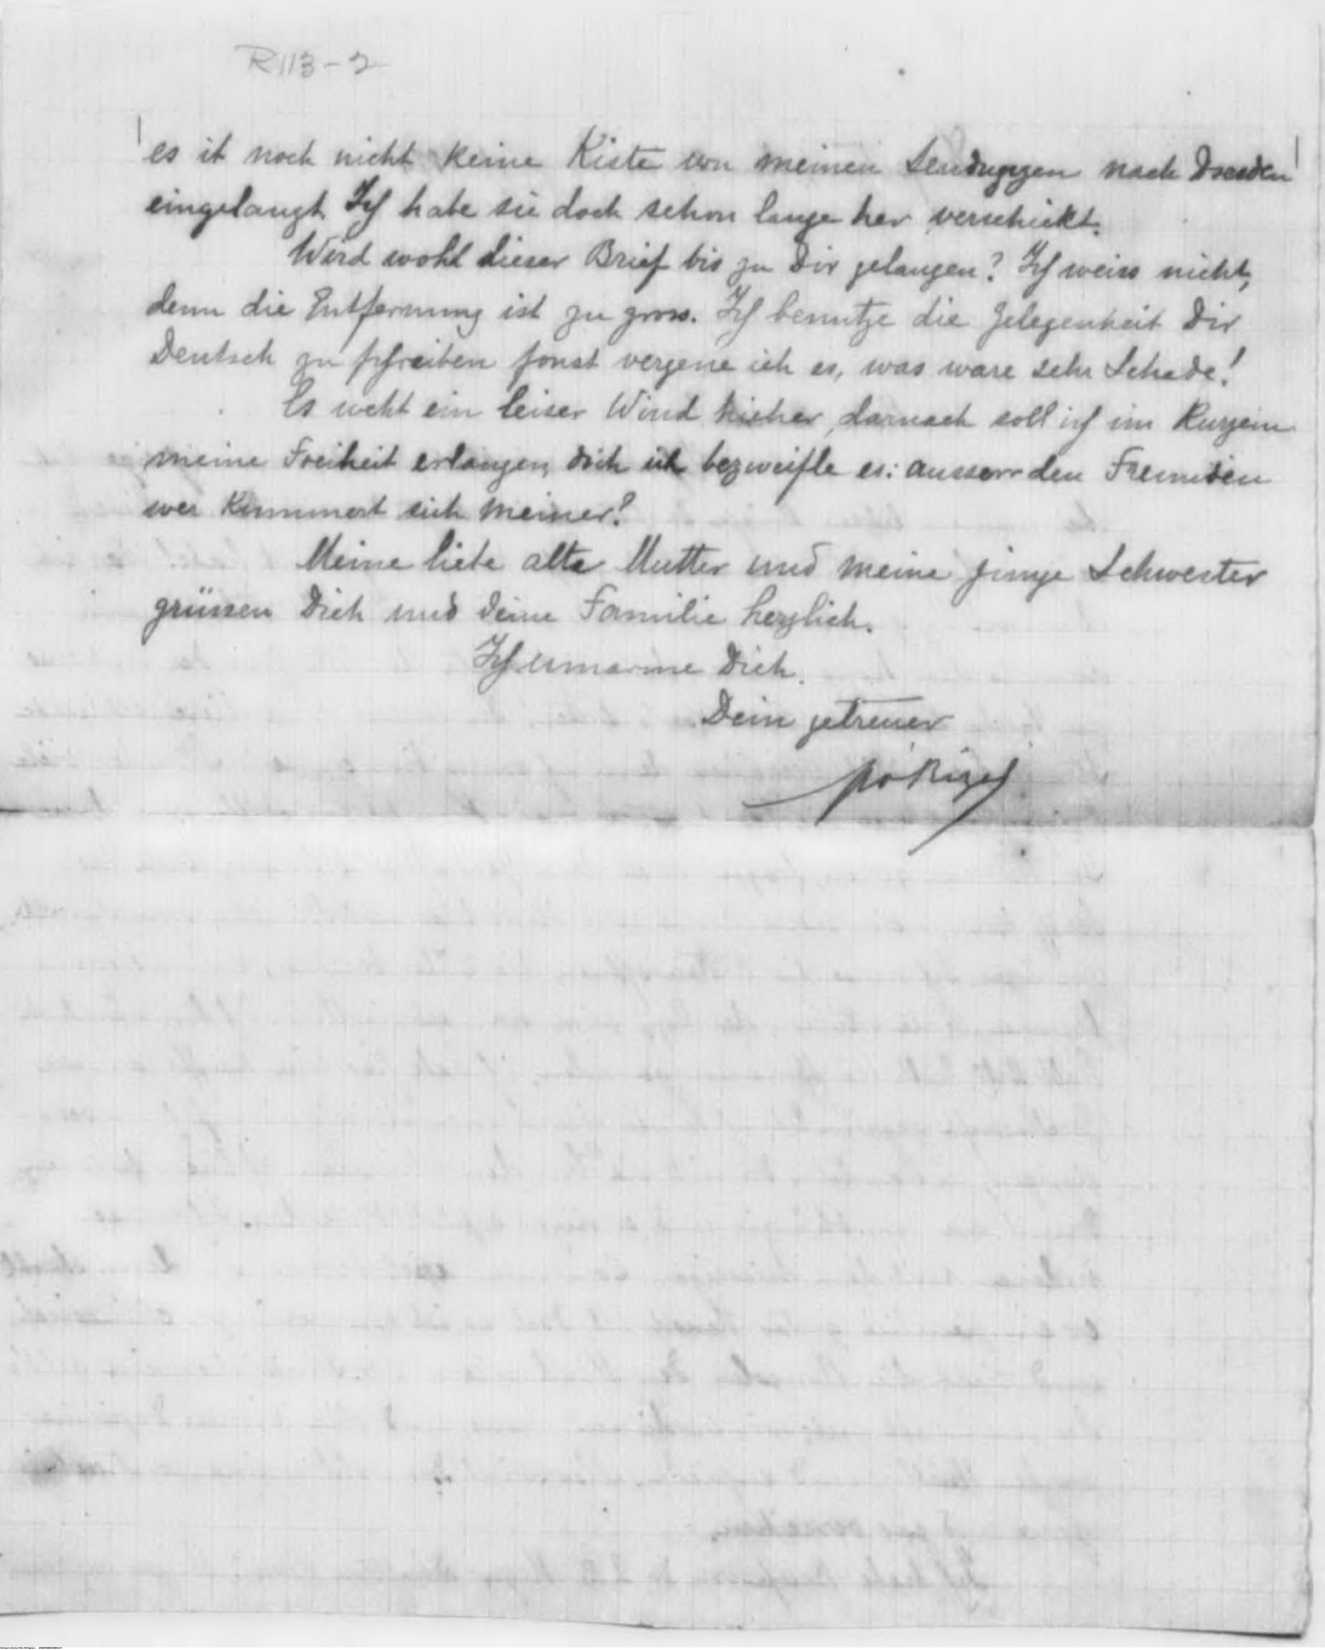 R113-2
es it noch nicht keine Kiste von meinen Sendungen nach Dresden
eingelangt Ich habe sie doch schon lange her verschickt.
Wird wohl dieser Brief bis zu Dir gelangen? Ich weiss nicht,
denn die Entfernung ist zu gross. Ich benutze die Gelegenheit Dir
Deutsch zu schreiben sonst vergene ich es, was ware sehr Schade!
Es weht ein leiser Wind hieher, darnach soll ich im Kurzem
meine Freiheit erlangen, doch ich bezweifle es: ausserr den Fremden
wer Kummert sich meiner?
Meine liebe alte Mutter und meine junge Schwester
grüssen Dich und Deine Familie herzlich.
Ich umarme Dich.
Dein getreuer